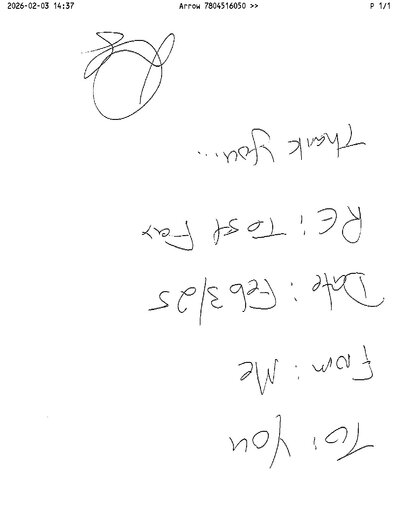 2026-02-03 14:37 Arrow 7804516050 >> P 1/1
To: You
From: Me
Date: Feb 3/25
RE: Test Fax
Thank you...